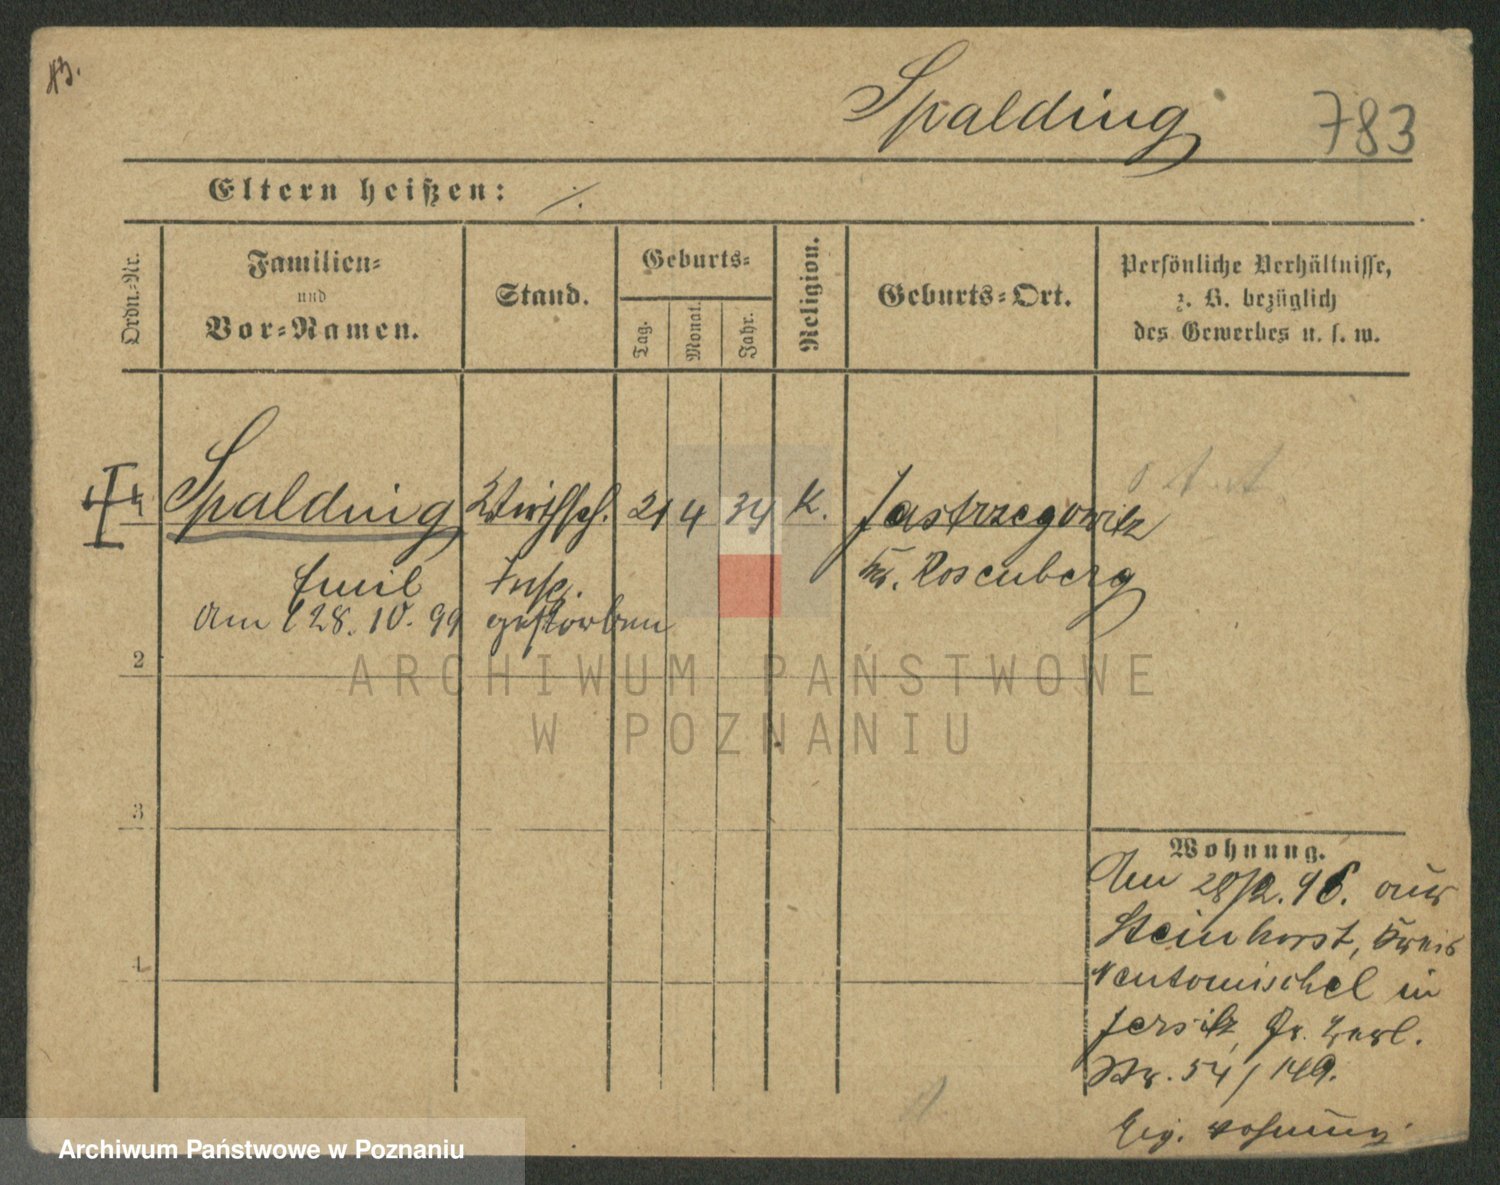 Spalding 783
Eltern heißen: ./.
Ordn.-Nr.
Familien-
und
Vor-Namen.
Stand.
Geburts-
Tag.
Monat.
Jahr.
Religion.
Geburts-Ort.
Persönliche Verhältnisse,
z. B. bezüglich
des Gewerbes u. s. w.
Spalding Wirthsch. 21 4 34 K. Jastrzegowitz
Emil Insp. Kr. Rosenberg
am 28. 10. 99 gestorben
2
3
4
Wohnung.
Am 28/2. 96. aus
Steinhorst, Kreis
Neutomischel in
Jersitz, Gr. Berl.
Str. 54/149.
Eig. Wohnung.
ARCHIWUM PAŃSTWOWE
W POZNANIU
Archiwum Państwowe w Poznaniu